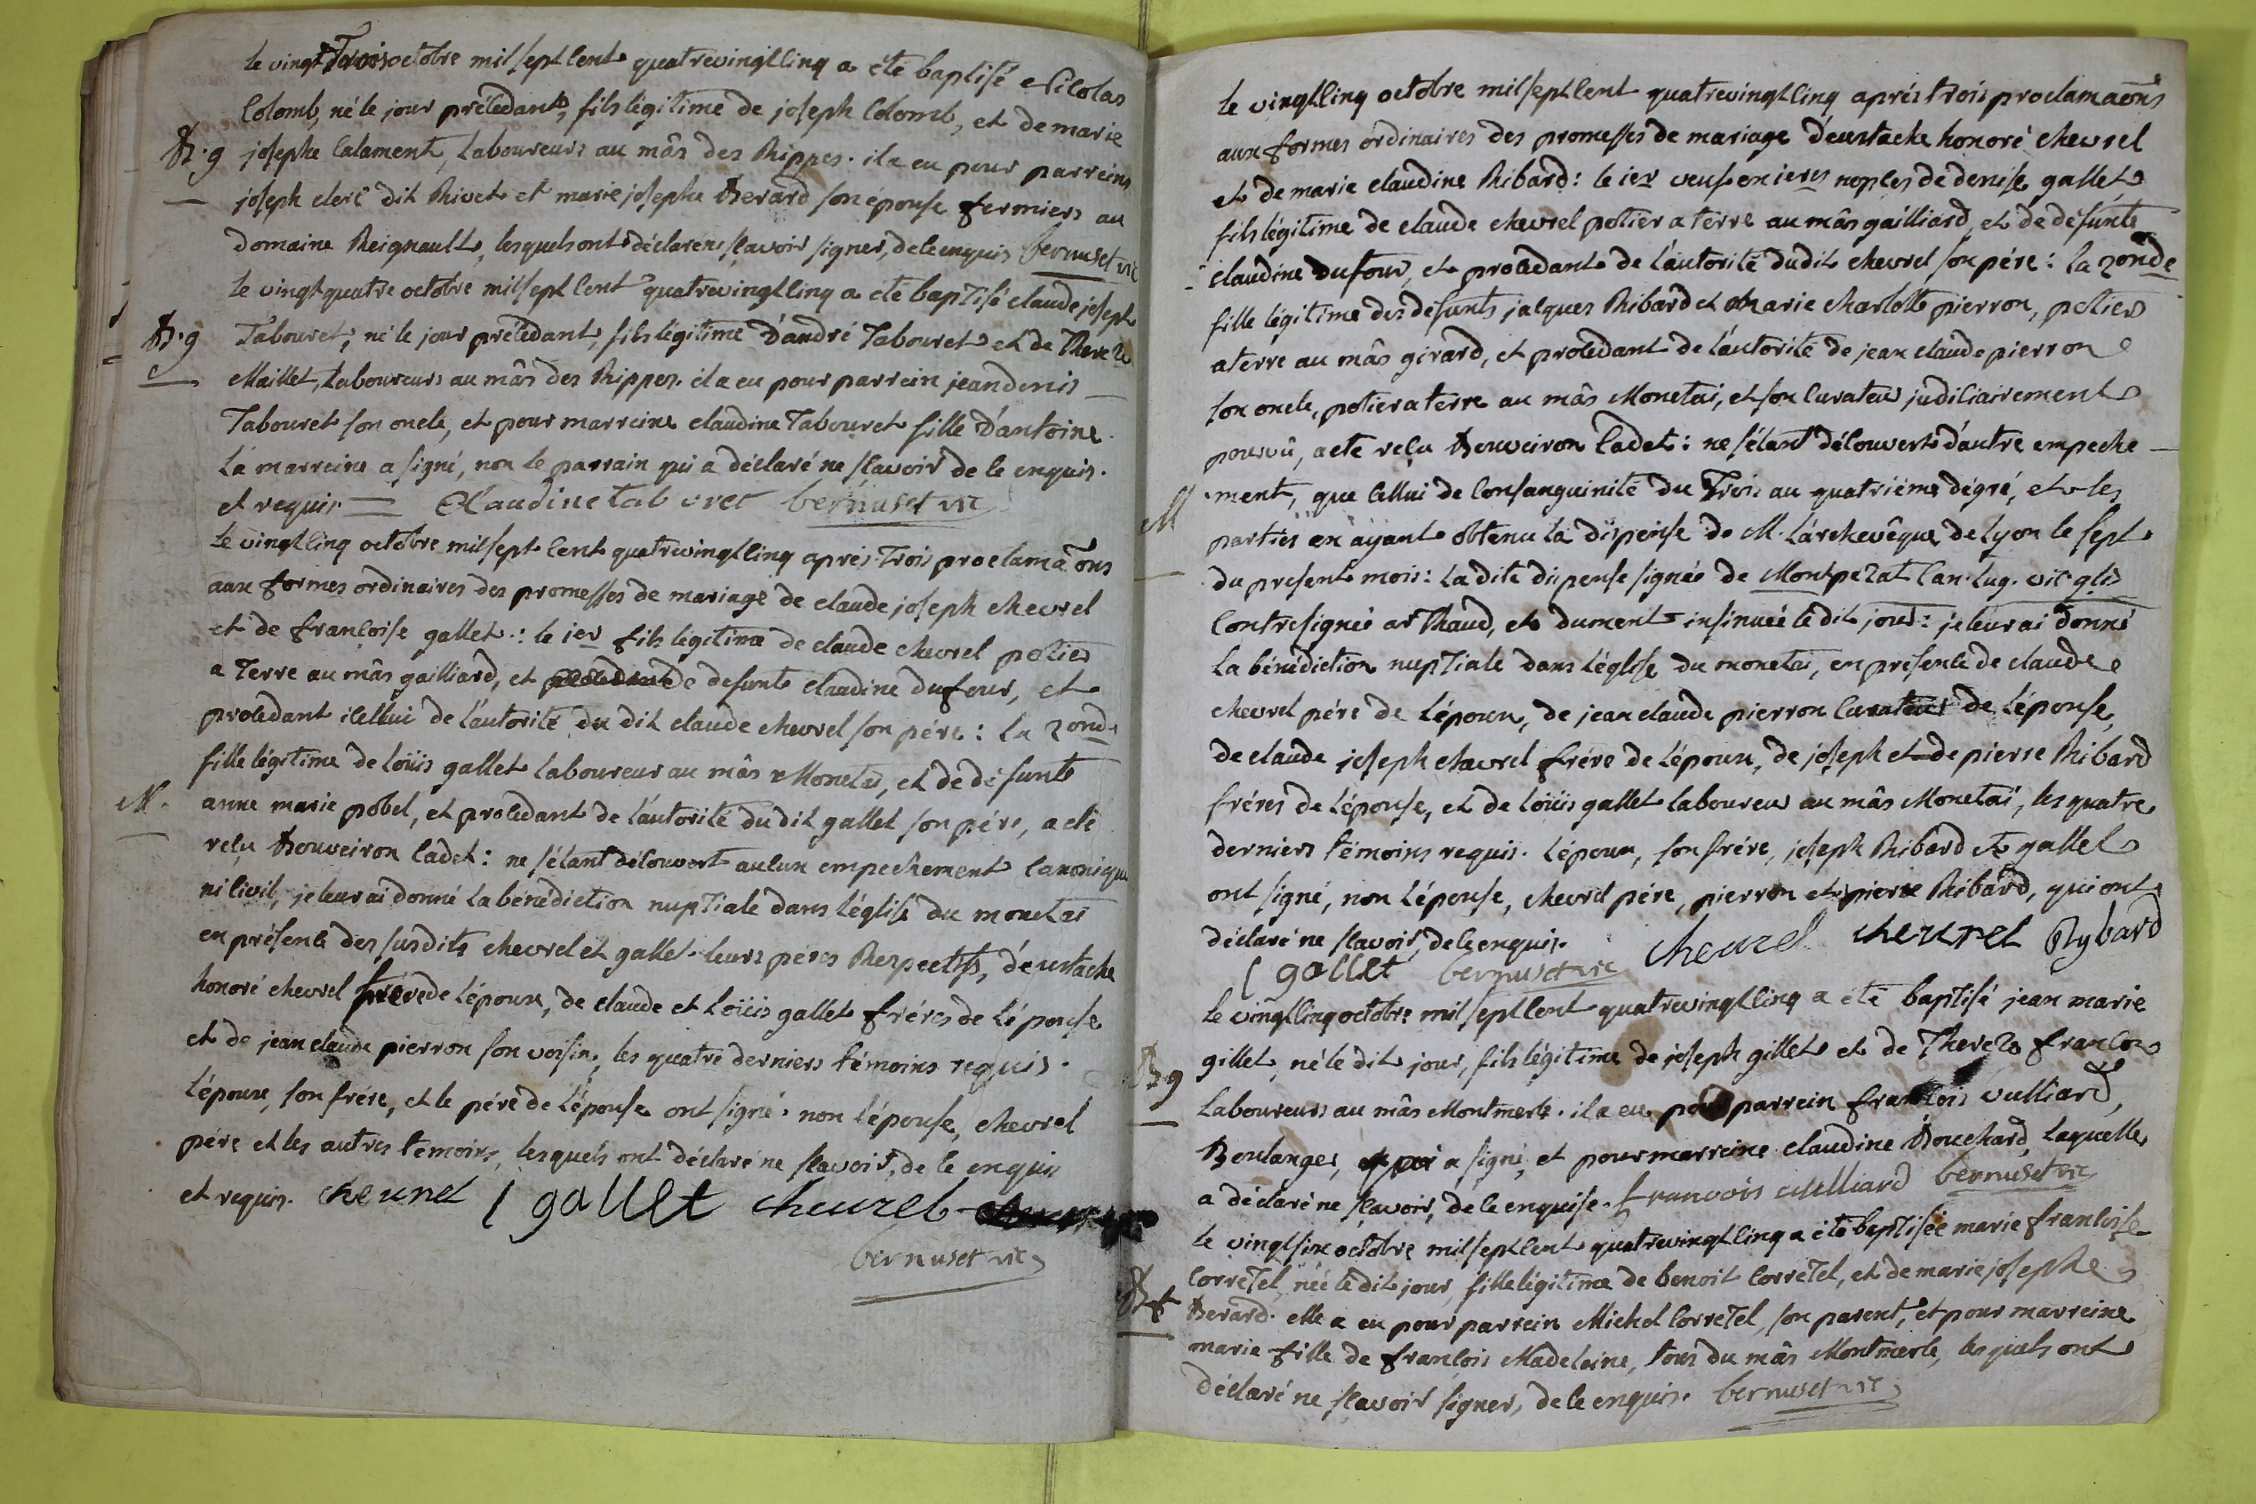 le vingt Trois octobre mil sept cent quatrevingt cinq a été baptisé Nicolas
Colomb, né le jour précedant, fils légitime de joseph Colomb, et de marie
B. g josephe Calament, Laboureurs au mâs des Rippes. il a eu pour parrein
joseph clerc dit Rivet et marie josephe Berard son épouse fermiers au
domaine Reignault, lesquels ont déclaré ne sçavoir signer, de ce enquis bernuset vic
le vingt quatre octobre mil sept cent quatrevingt cinq a été baptisé claude joseph
B. g Tabouret, né le jour précedant, fils légitime d'andré Tabouret et de Thereze
Maillet, Laboureurs au mâs des Rippes. il a eu pour parrein jean denis
Tabouret son oncle, et pour marreine claudine Tabouret fille d'antoine.
La marreine a signé, non le parrain qui a déclaré ne sçavoir de ce enquis.
et requis = Claudine tab uret bernuset vic
Le vingt cinq octobre mil sept cent quatrevingt cinq aprés Trois proclamaõns
aux formes ordinaires des promesses de mariage de claude joseph chevrel
et de françoise gallet : le ier fils légitime de claude chevrel potier
a Terre au mâs gailliard, et de defunte claudine dufour, et
procedant icellui de l'autorité du dit claude chevrel son pére : La 2onde
fille légitime de loüis gallet laboureur au mâs Monetai, et de défunte
M. anne marie pobel, et procedant de l'autorité du dit gallet son pére, acte
reçu Bouveiron Cadet : ne s'étant découvert aucun empechement canonique
ni civil, je leur ai donné la bénédiction nuptiale dans l'église du monetai
en présence des susdits chevrel et gallet leurs péres Respectifs, d'eustache
honoré chevrel frere de L'époux, de claude et loüis gallet fréres de L'épouse
et de jean claude pierron son voisin, les quatre derniers témoins requis.
L'époux, son frére, et le pére de L'épouse ont signé. non l'épouse, chevrel
pére et les autres témoins, lesquels ont déclaré ne sçavoir, de ce enquis
et requis. cheurel l gallet cheurel
bernuset vic
le vingt cinq octobre mil sept cent quatrevingt cinq aprés trois proclamaõns
aux formes ordinaires des promesses de mariage d'eustache honoré chevrel
et de marie claudine Ribard : le ier veuf en ieres nopces de denise gallet
fils légitime de claude chevrel potier a terre au mâs gailliard, et de défunte
claudine Dufour, et procedant de l'autorité dudit chevrel son pére : La 2onde
fille légitime des défunts jacques Ribard et Marie Charlotte pierron, potier
a terre au mâs girard, et procedant de l'autorité de jean claude pierron
son oncle, potier a terre au mâs Monetai, et son Curateur judiciairement
pourvû, acte reçu Bouveiron Cadet : ne s'étant découvert d'autre empeche
M ment, que cellui de Consanguinité du Trois au quatrième dégré, et les
parties en ayant obtenu la dispense de M. L'archevêque de Lyon le sept
du present mois : La dite dispense signée de Montpezat Can. lug. vic. glis
Contresignée arThaud, et dument insinuée le dit jour : je leur ai donné
La bénédiction nuptiale dans l'églose du monetai, en présence de claude
chevrel pére de L'époux, de jean claude pierron Curateur de L'épouse,
de claude joseph chevrel frére de L'époux, de joseph et de pierre Ribard
fréres de L'épouse, et de loüis gallet laboureur au mâs Monetai, les quatre
derniers témoins requis. L'époux, son frére, joseph Ribard et gallet
ont signé, non L'épouse, chevrel pére, pierron et pierre Ribard, qui ont
déclaré ne sçavoir, de ce enquis. cheurel cheurel Rybard
l gallet bernuset vic
le vingt cinq octobre mil sept cent quatrevingt cinq a été baptisé jean marie
B. g gillet, né le dit jour, fils légitime de joseph gillet et de Thereze françon
Laboureurs au mâs Montmerle. il a eu pour parrein françois vulliard,
Boulanger, qui a signé, et pour marreine claudine Bouchard, laquelle
a déclaré ne sçavoir, de ce enquise. francois vulliard bernuset vic
le vingt six octobre mil sept cent quatrevingt cinq a été baptisée marie françoise
Corretel, née le dit jour, fille légitime de benoit Corretel, et de marie josephe
B. f Berard. elle a eu pour parrein Michel Corretel, son parent, et pour marreine
marie fille de françois Madeleine, tous du mâs Montmerle, lesquels ont
déclaré ne sçavoir signer, de ce enquis. bernuset vic